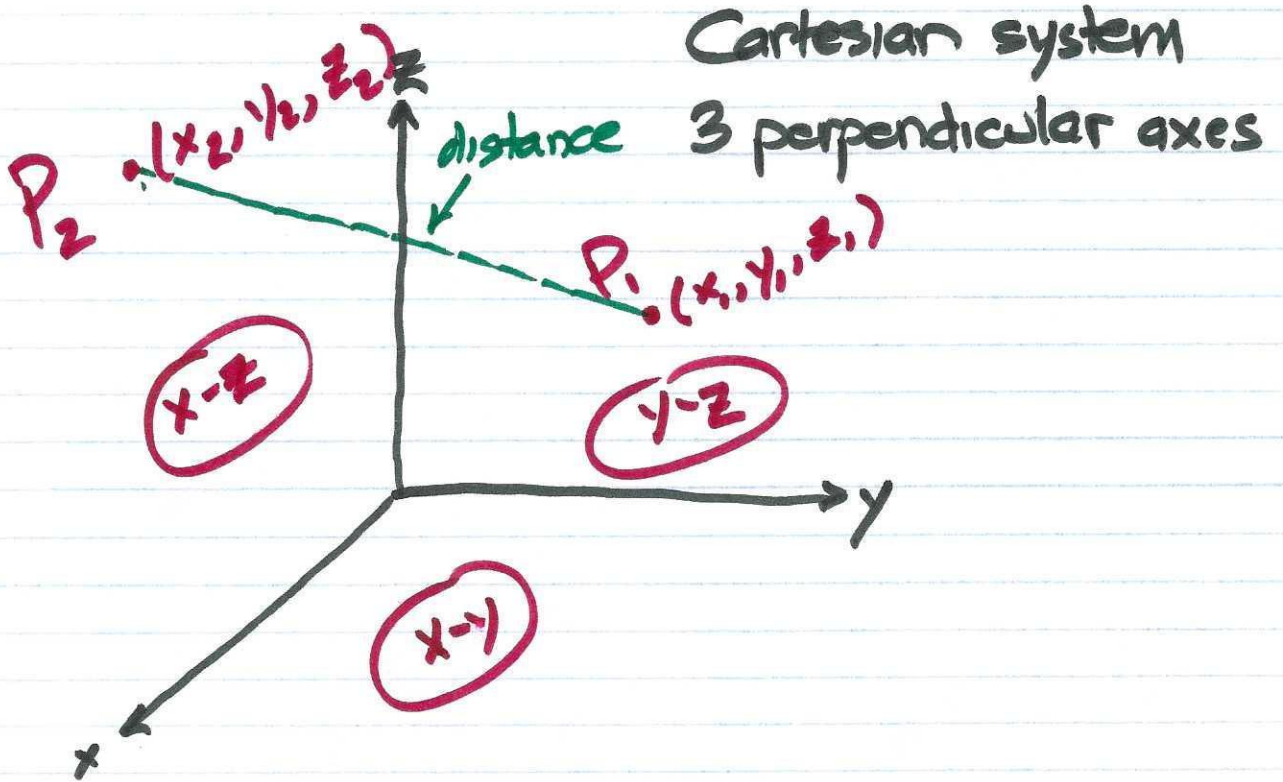 Cartesian system
3 perpendicular axes
z
P₂ (x₂, y₂, z₂)
distance
P₁ (x₁, y₁, z₁)
x-z
y-z
y
x-y
x